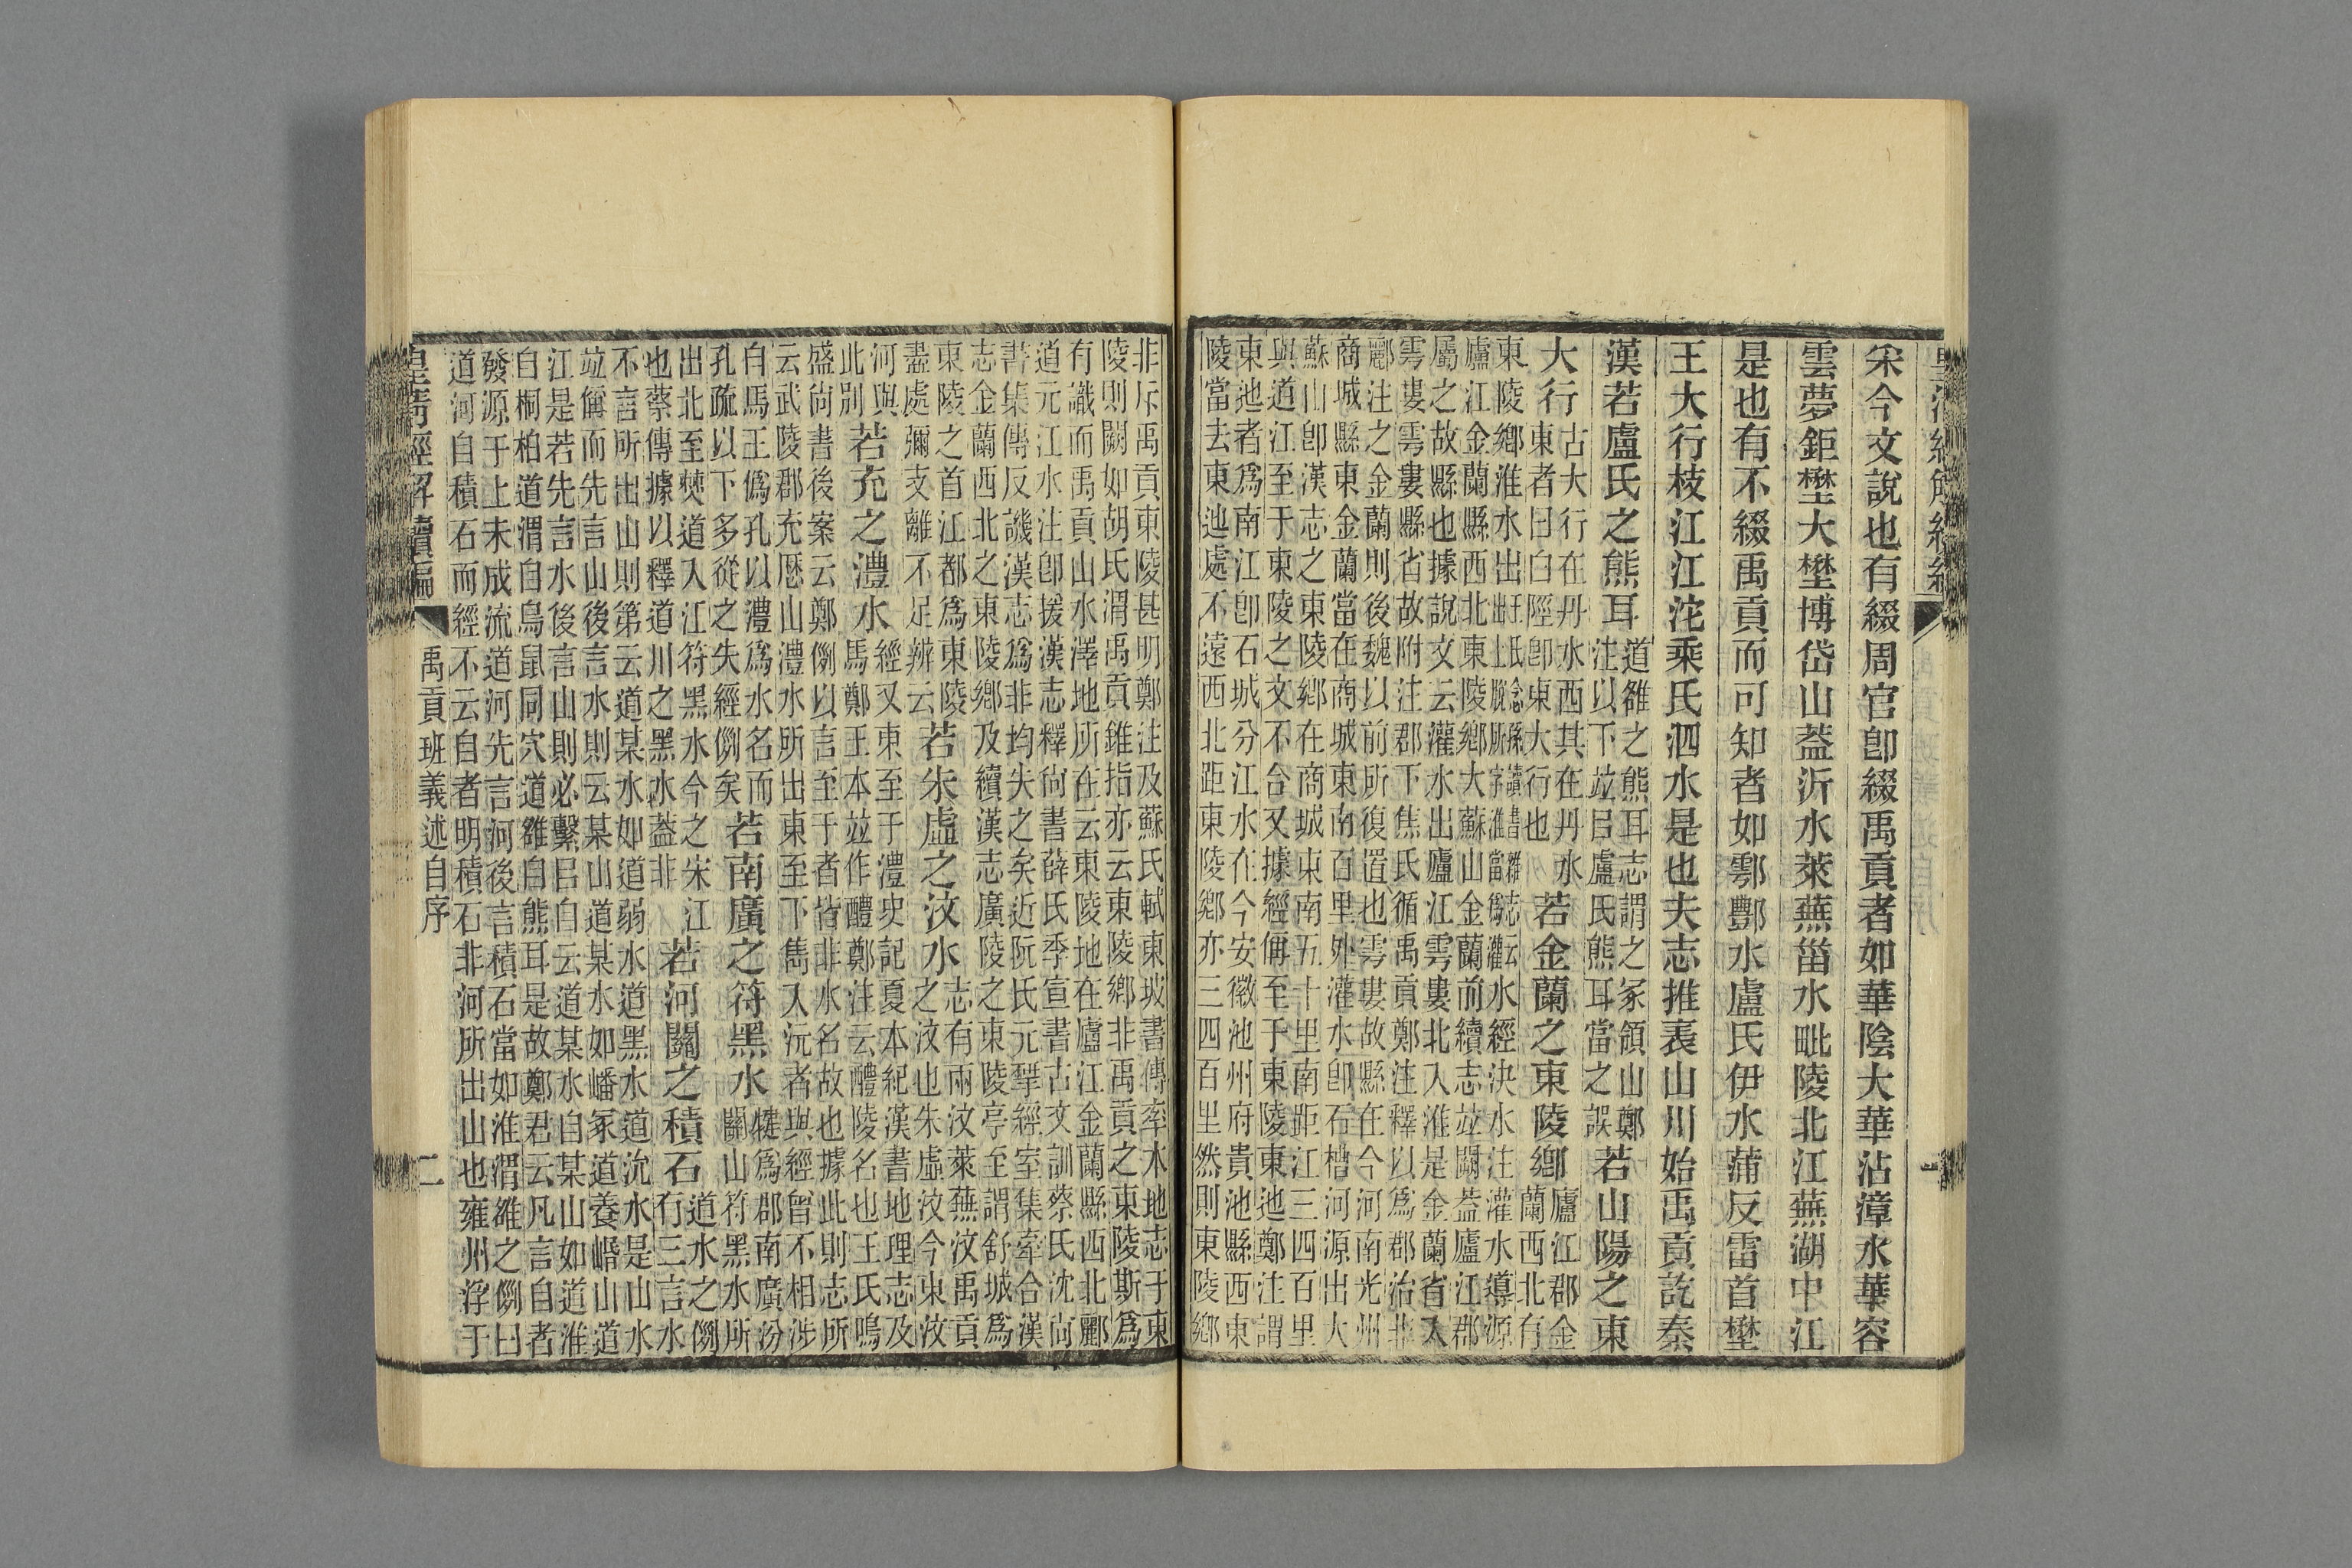 宋今文說也有綴周官卽綴禹貢者如華陰大華沾漳水華容
雲夢鉅壄大壄博岱山葢沂水萊蕪甾水毗陵北江蕪湖中江
是也有不綴禹貢而可知者如鄠酆水盧氏伊水蒲反雷首壄
王大行枝江江沱乘氏泗水是也夫志推表山川始禹貢訖秦
漢若盧氏之熊耳
道雒之熊耳志謂之冢領山鄭
注以下竝㠯盧氏熊耳當之誤
若山陽之東
大行
古大行在丹水西其在丹水
東者曰白陘卽東大行也
若金蘭之東陵鄉
廬江郡金
蘭西北有
東陵鄉淮水出
水經決水注灌水導源
廬江金蘭縣西北東陵鄉大蘇山金蘭前續志竝闕葢廬江郡
屬之故縣也據說文云灌水出廬江雩婁北入淮是金蘭省入
雩婁雩婁縣省故附注郡下焦氏循禹貢鄭注釋以爲郡治非
酈注之金蘭則後魏以前所復置也雩婁故縣在今河南光州
商城縣東金蘭當在商城東南百里外灌水卽石槽河源出大
蘇山卽漢志之東陵鄉在商城東南五十里南距江三四百里
與道江至于東陵之文不合又據經偁至于東陵東迆鄭注謂
東迆者爲南江卽石城分江水在今安徽池州府貴池縣西東
陵當去東迆處不遠西北距東陵鄉亦三四百里然則東陵鄉
非斥禹貢東陵甚明鄭注及蘇氏軾東坡書傳牽本地志于東
陵則闕如胡氏渭禹貢錐指亦云東陵鄉非禹貢之東陵斯爲
有識而禹貢山水澤地所在云東陵地在廬江金蘭縣西北酈
道元江水注卽援漢志釋尚書薛氏季宣書古文訓蔡氏沈尚
書集傳反譏漢志爲非均失之矣近阮氏元揅經室集牽合漢
志金蘭西北之東陵鄉及續漢志廣陵之東陵亭至謂舒城爲
東陵之首江都爲東陵
盡處彌支離不足辨云
若朱虛之汶水
志有兩汶萊蕪汶禹貢
之汶也朱虛汶今東汶
河與
此別
若充之澧水
經又東至于澧史記夏本紀漢書地理志及
馬鄭王本竝作醴鄭注云醴陵名也王氏鳴
盛尚書後案云鄭例以言至于者皆非水名故也據此則志所
云武陵郡充歷山澧水所出東至下雋入沅者與經曾不相涉
白馬王僞孔以澧爲水名而
孔疏以下多從之失經例矣
若南廣之符黑水
犍爲郡南廣汾
關山符黑水所
出北至僰道入江符黑水今之宋江
也蔡傳據以釋道川之黑水葢非
若河關之積石
道水之例
有三言水
不言所出山則第云道某水如道弱水道黑水道沇水是山水
竝偁而先言山後言水則云某山道某水如嶓冢道養崏山道
江是若先言水後言山則必繫㠯自云道某水自某山如道淮
自桐柏道渭自鳥鼠同穴道雒自熊耳是故鄭君云凡言自者
發源于上未成流道河先言河後言積石當如淮渭雒之例曰
道河自積石而經不云自者明積石非河所出山也雍州浮于
皇清經解續編
禹貢班義述自序
二